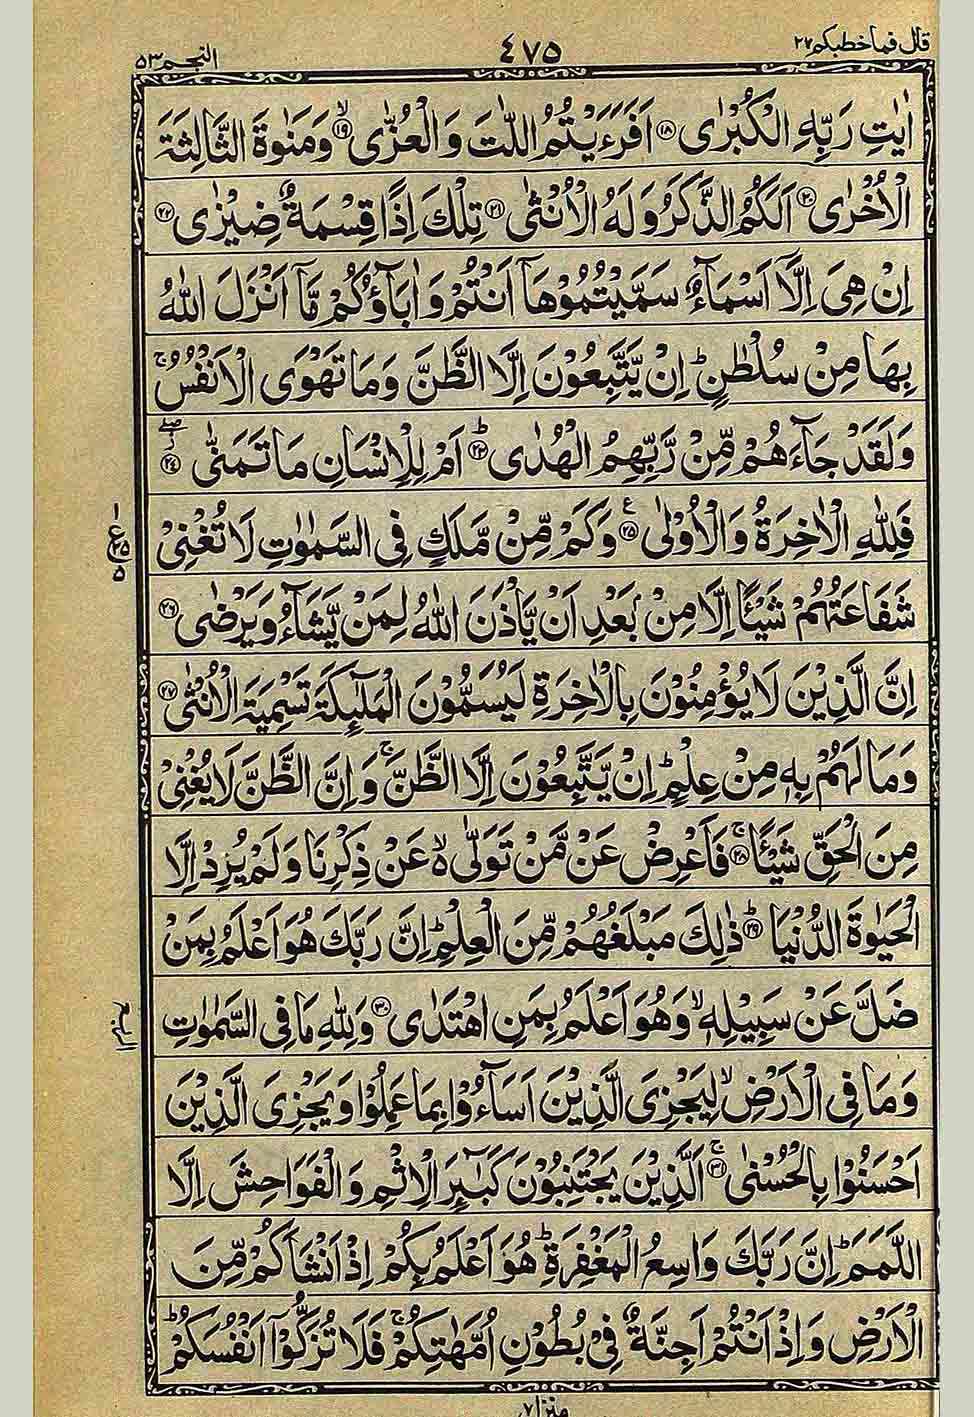 قال فما خطبكم ٢٧
٤٧٥
النجم ٥٣
اٰيٰتِ رَبِّهِ الْكُبْرٰى ﴿١٨﴾ اَفَرَءَيْتُمُ اللّٰتَ وَالْعُزّٰى ۙ﴿١٩﴾ وَمَنٰوةَ الثَّالِثَةَ
الْاُخْرٰى ﴿٢٠﴾ اَلَكُمُ الذَّكَرُ وَلَهُ الْاُنْثٰى ﴿٢١﴾ تِلْكَ اِذًا قِسْمَةٌ ضِيْزٰى ﴿٢٢﴾
اِنْ هِىَ اِلَّاۤ اَسْمَآءٌ سَمَّيْتُمُوْهَاۤ اَنْتُمْ وَاٰبَآؤُكُمْ مَّاۤ اَنْزَلَ اللّٰهُ
بِهَا مِنْ سُلْطٰنٍ ؕ اِنْ يَّتَّبِعُوْنَ اِلَّا الظَّنَّ وَمَا تَهْوَى الْاَنْفُسُ ۚ
وَلَقَدْ جَآءَهُمْ مِّنْ رَّبِّهِمُ الْهُدٰى ؕ﴿٢٣﴾ اَمْ لِلْاِنْسَانِ مَا تَمَنّٰى ۖ﴿٢٤﴾
فَلِلّٰهِ الْاٰخِرَةُ وَالْاُوْلٰى ﴿٢٥﴾ ع وَكَمْ مِّنْ مَّلَكٍ فِى السَّمٰوٰتِ لَا تُغْنِىْ
١
ع ٢٥
٥
شَفَاعَتُهُمْ شَيْئًا اِلَّا مِنْۢ بَعْدِ اَنْ يَّاْذَنَ اللّٰهُ لِمَنْ يَّشَآءُ وَيَرْضٰى ﴿٢٦﴾
اِنَّ الَّذِيْنَ لَا يُؤْمِنُوْنَ بِالْاٰخِرَةِ لَيُسَمُّوْنَ الْمَلٰٓئِكَةَ تَسْمِيَةَ الْاُنْثٰى ﴿٢٧﴾
وَمَا لَهُمْ بِهٖ مِنْ عِلْمٍ ؕ اِنْ يَّتَّبِعُوْنَ اِلَّا الظَّنَّ ۚ وَاِنَّ الظَّنَّ لَا يُغْنِىْ
مِنَ الْحَقِّ شَيْئًا ۚ﴿٢٨﴾ فَاَعْرِضْ عَنْ مَّنْ تَوَلّٰى ۙ۬ عَنْ ذِكْرِنَا وَلَمْ يُرِدْ اِلَّا
الْحَيٰوةَ الدُّنْيَا ؕ﴿٢٩﴾ ذٰلِكَ مَبْلَغُهُمْ مِّنَ الْعِلْمِ ؕ اِنَّ رَبَّكَ هُوَ اَعْلَمُ بِمَنْ
ضَلَّ عَنْ سَبِيْلِهٖ ۙ وَهُوَ اَعْلَمُ بِمَنِ اهْتَدٰى ﴿٣٠﴾ وَلِلّٰهِ مَا فِى السَّمٰوٰتِ
الربع
وَمَا فِى الْاَرْضِ ۙ لِيَجْزِىَ الَّذِيْنَ اَسَآءُوْا بِمَا عَمِلُوْا وَيَجْزِىَ الَّذِيْنَ
اَحْسَنُوْا بِالْحُسْنٰى ۚ﴿٣١﴾ اَلَّذِيْنَ يَجْتَنِبُوْنَ كَبٰٓئِرَ الْاِثْمِ وَالْفَوَاحِشَ اِلَّا
اللَّمَمَ ؕ اِنَّ رَبَّكَ وَاسِعُ الْمَغْفِرَةِ ؕ هُوَ اَعْلَمُ بِكُمْ اِذْ اَنْشَاَكُمْ مِّنَ
الْاَرْضِ وَاِذْ اَنْتُمْ اَجِنَّةٌ فِىْ بُطُوْنِ اُمَّهٰتِكُمْ ۚ فَلَا تُزَكُّوْۤا اَنْفُسَكُمْ ؕ
منزل ٧